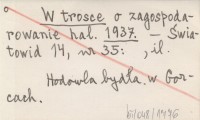 W trosce o zagospoda-
rowanie hal. 1937. – Świa-
towid 14, nr 35: , il.
Hodowla bydła w Gor-
cach.